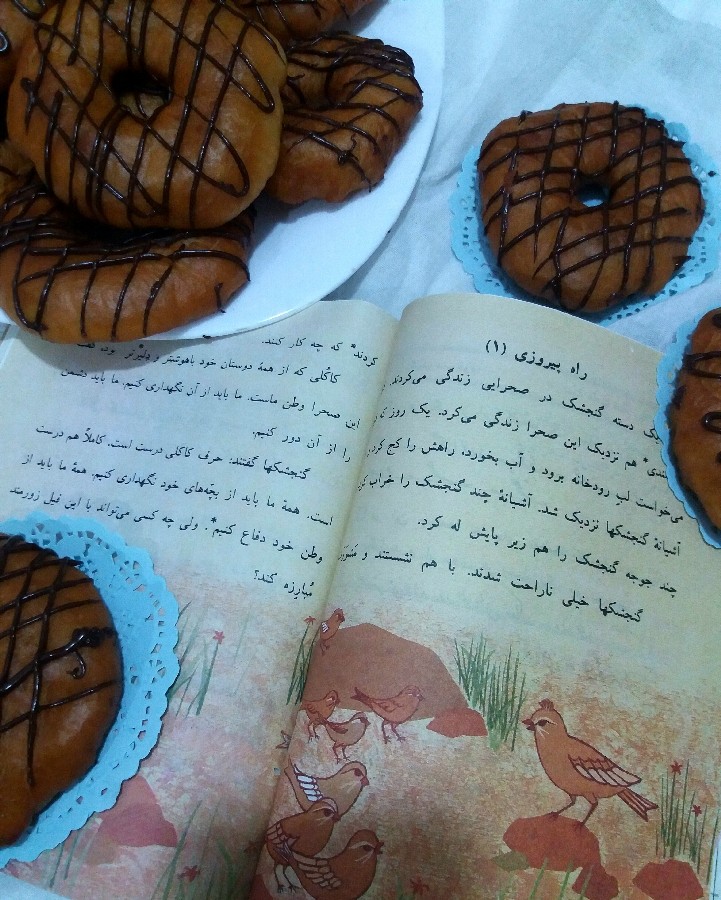 راه پیروزی (۱)
یک دسته گنجشک در صحرایی زندگی می‌کردند.
هم نزدیک این صحرا زندگی می‌کرد. یک روز
می‌خواست لب رودخانه برود و آب بخورد، راهش را کج کرد
آشیانهٔ گنجشکها نزدیک شد. آشیانهٔ چند گنجشک را خراب
چند جوجه گنجشک را هم زیر پایش له کرد.
گنجشکها خیلی ناراحت شدند. با هم نشستند و
کردند* که چه کار کنند.
کاکلی که از همهٔ دوستان خود باهوشتر و دلیرتر* بود، گفت
این صحرا وطن ماست. ما باید از آن نگهداری کنیم. ما باید دشمن
را از آن دور کنیم.
گنجشکها گفتند: حرف کاکلی درست است. کاملاً هم درست
است. همهٔ ما باید از بچّه‌های خود نگهداری کنیم. همهٔ ما باید از
وطن خود دفاع کنیم*. ولی چه کسی می‌تواند با این فیل زورمند
مُبارِزه کند؟